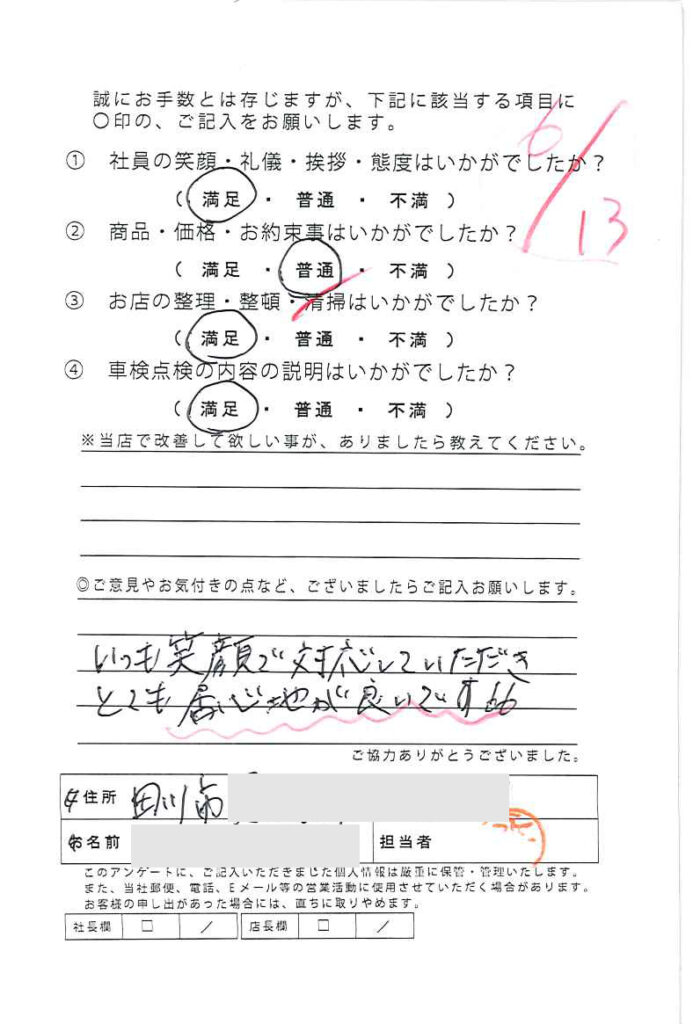 誠にお手数とは存じますが、下記に該当する項目に
〇印の、ご記入をお願いします。
6/13
① 社員の笑顔・礼儀・挨拶・態度はいかがでしたか？
( 満足 ・ 普通 ・ 不満 )
② 商品・価格・お約束事はいかがでしたか？
( 満足 ・ 普通 ・ 不満 )
③ お店の整理・整頓・清掃はいかがでしたか？
( 満足 ・ 普通 ・ 不満 )
④ 車検点検の内容の説明はいかがでしたか？
( 満足 ・ 普通 ・ 不満 )
※当店で改善して欲しい事が、ありましたら教えてください。
◎ご意見やお気付きの点など、ございましたらご記入お願いします。
いつも笑顔で対応していただき
とても居心地が良いです
ご協力ありがとうございました。
住所 田川市
お名前
担当者
このアンケートに、ご記入いただきました個人情報は厳重に保管・管理いたします。
また、当社郵便、電話、Eメール等の営業活動に使用させていただく場合があります。
お客様の申し出があった場合には、直ちに取りやめます。
社長欄 □ ／ 店長欄 □ ／